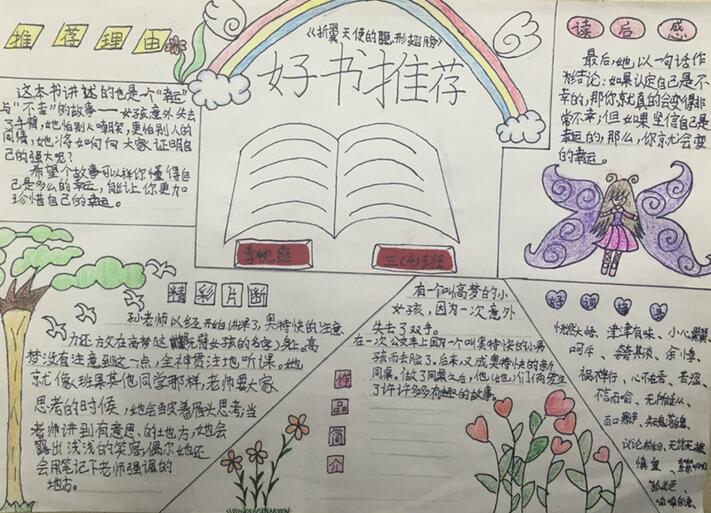 《折翼天使的隐形翅膀》
好书推荐
推荐理由
这本书讲述的也是一个“幸运”
与“不幸”的故事——女孩意外失去
了手臂，她怕别人嘲笑，更怕别人的
同情，她将如何向大家证明自
己的强大呢？
希望个故事可以样你懂得自
己是多么的幸运，能让你更加
珍惜自己的幸运。
读后感
最后，她以一句话作
为结论：如果认定自己是不
幸的，那你就真的会变得非
常不幸，但如果坚信自己是
幸运的，那么，你就会变
的幸运。
三(4)班
精彩片断
孙老师以经开始讲课了，奥特快的注意
力还放在高梦这
无臂女孩的名字)身上。高
梦没有注意到这一点，全神贯注地听课。她
就像班里其他同学那样，老师要大家
思考的时候，她会皱着眉头思考；当
老师讲到有意思的地方，她会
露出浅浅的笑容；偶尔她还
会用笔记下老师强调的
地方。
作品简介
有一个叫高梦的小
女孩，因为一次意外
失去了双手。
在一次公交车上因为一个叫奥特快的小男
孩而去脸了。后来，又成奥特快的新
同桌。做了同桌之后，他(她)们俩发生
了许许多多有趣的故事。
好词摘录
恍然大悟、津津有味、小心翼翼
祸不单行、心不在焉、
不言而喻、无所适从、
议论纷纷、无忧无虑